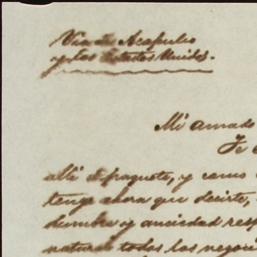 Via de Acapulco
y los Estados Unidos.
Mi amado
Te
allí el paquete, y como
tengo ahora que decirte,
dumbre y ansiedad resp
natural todos los negoci